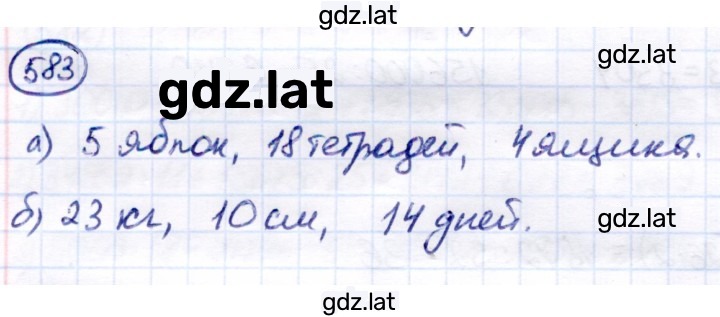 gdz.lat
583
gdz.lat
gdz.lat
а) 5 яблок, 18 тетрадей, 4 ящика.
б) 23 кг, 10 см, 14 дней.
gdz.lat
gdz.lat